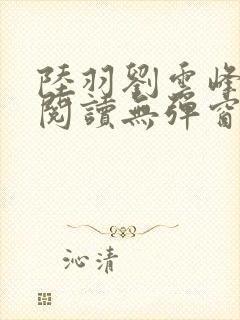 陸羽劉雲峰
閱讀無彈窗
沁清